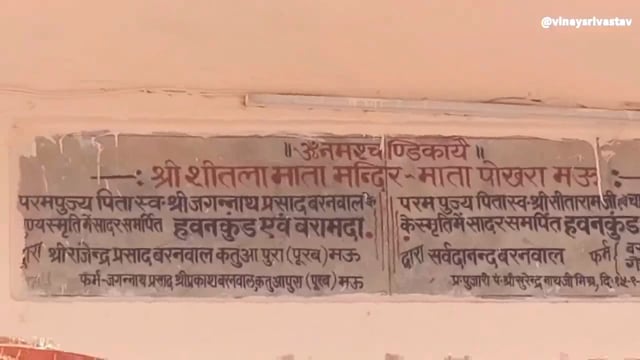 @vinaysrivastav
॥ ॐ नमश्चण्डिकायै ॥
—: श्री शीतला माता मन्दिर - माता पोखरा मऊ :—
परमपुज्य पिता स्व॰ श्री जगन्नाथ प्रसाद बरनवाल के
पुण्य स्मृति में सादर समर्पित हवनकुंड एवं बरामदा.
द्वारा श्री राजेन्द्र प्रसाद बरनवाल कतुआ पुरा (पूरब) मऊ
फर्म - जगन्नाथ प्रसाद श्रीप्रकाश बरनवाल, कतुआपुरा (पूरब) मऊ
परम पूज्य पिता स्व॰ श्री सीताराम जी
के स्मृति में सादर समर्पित हवनकुंड
द्वारा सर्वदानन्द बरनवाल फर्म
प्र॰ पुजारी पं॰ श्री सुरेन्द्र मिश्र, दि॰